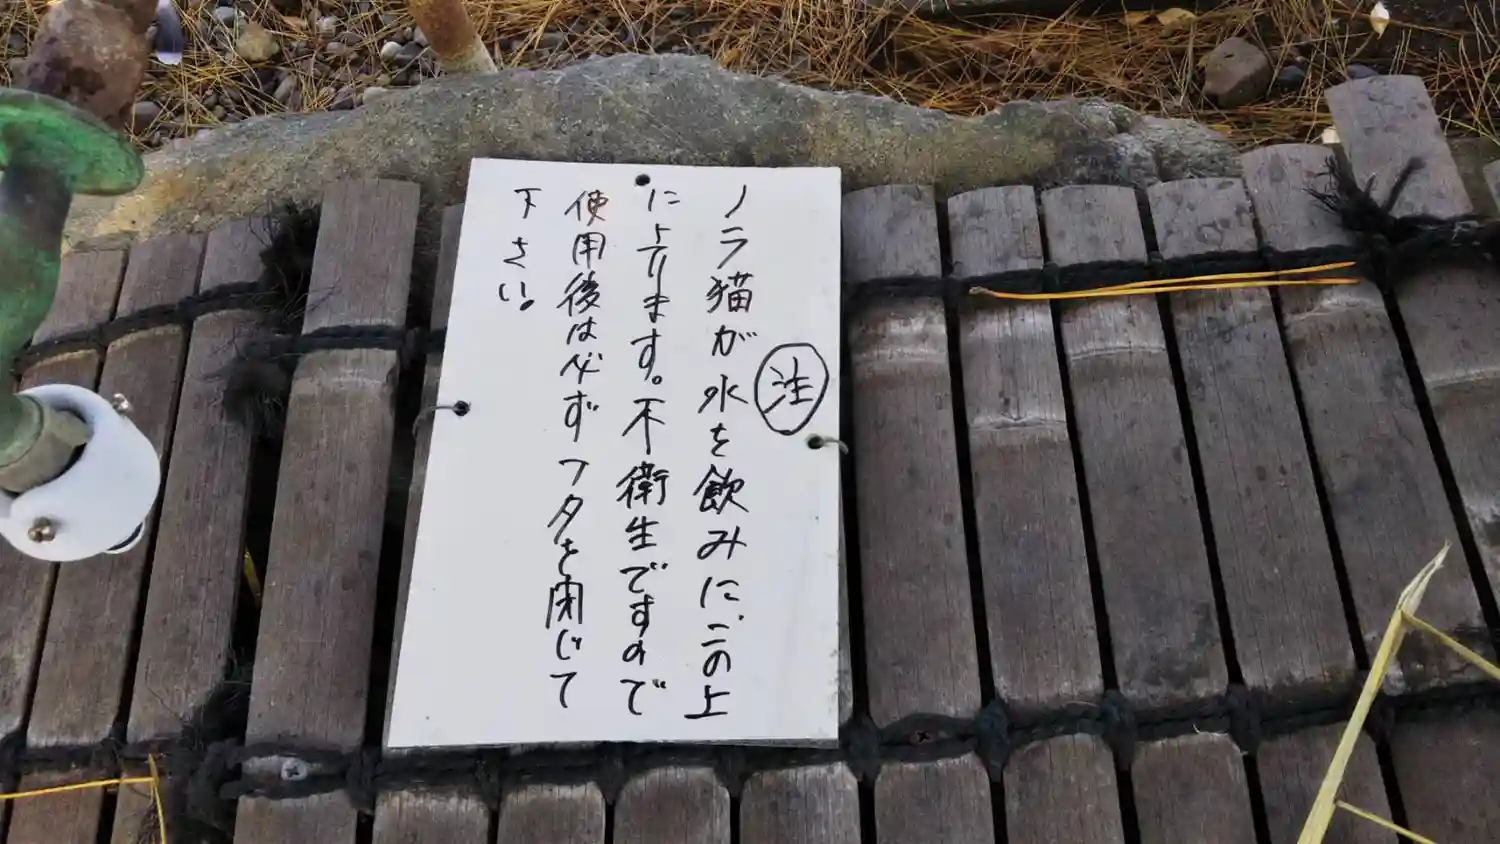 注
ノラ猫が水を飲みに、この上
によります。不衛生ですので
使用後は必ずフタを閉じて
下さい。